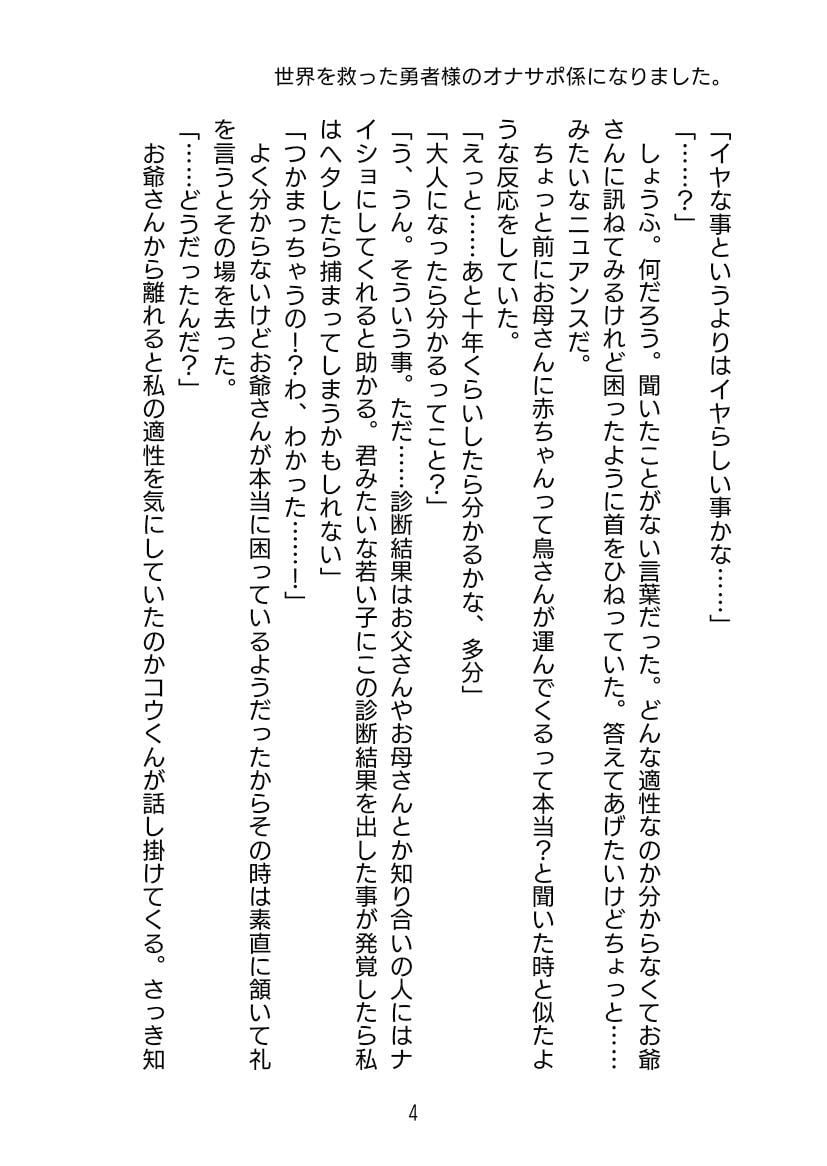 世界を救った勇者様のオナサポ係になりました。
「イヤな事というよりはイヤらしい事かな……」
「……？」
しょうふ。何だろう。聞いたことがない言葉だった。どんな適性なのか分からなくてお爺
さんに訊ねてみるけれど困ったように首をひねっていた。答えてあげたいけどちょっと……
みたいなニュアンスだ。
ちょっと前にお母さんに赤ちゃんって鳥さんが運んでくるって本当？と聞いた時と似たよ
うな反応をしていた。
「えっと……あと十年くらいしたら分かるかな、多分」
「大人になったら分かるってこと？」
「う、うん。そういう事。ただ……診断結果はお父さんやお母さんとか知り合いの人にはナ
イショにしてくれると助かる。君みたいな若い子にこの診断結果を出した事が発覚したら私
はヘタしたら捕まってしまうかもしれない」
「つかまっちゃうの！？わ、わかった……！」
よく分からないけどお爺さんが本当に困っているようだったからその時は素直に頷いて礼
を言うとその場を去った。
「……どうだったんだ？」
お爺さんから離れると私の適性を気にしていたのかコウくんが話し掛けてくる。さっき知
4